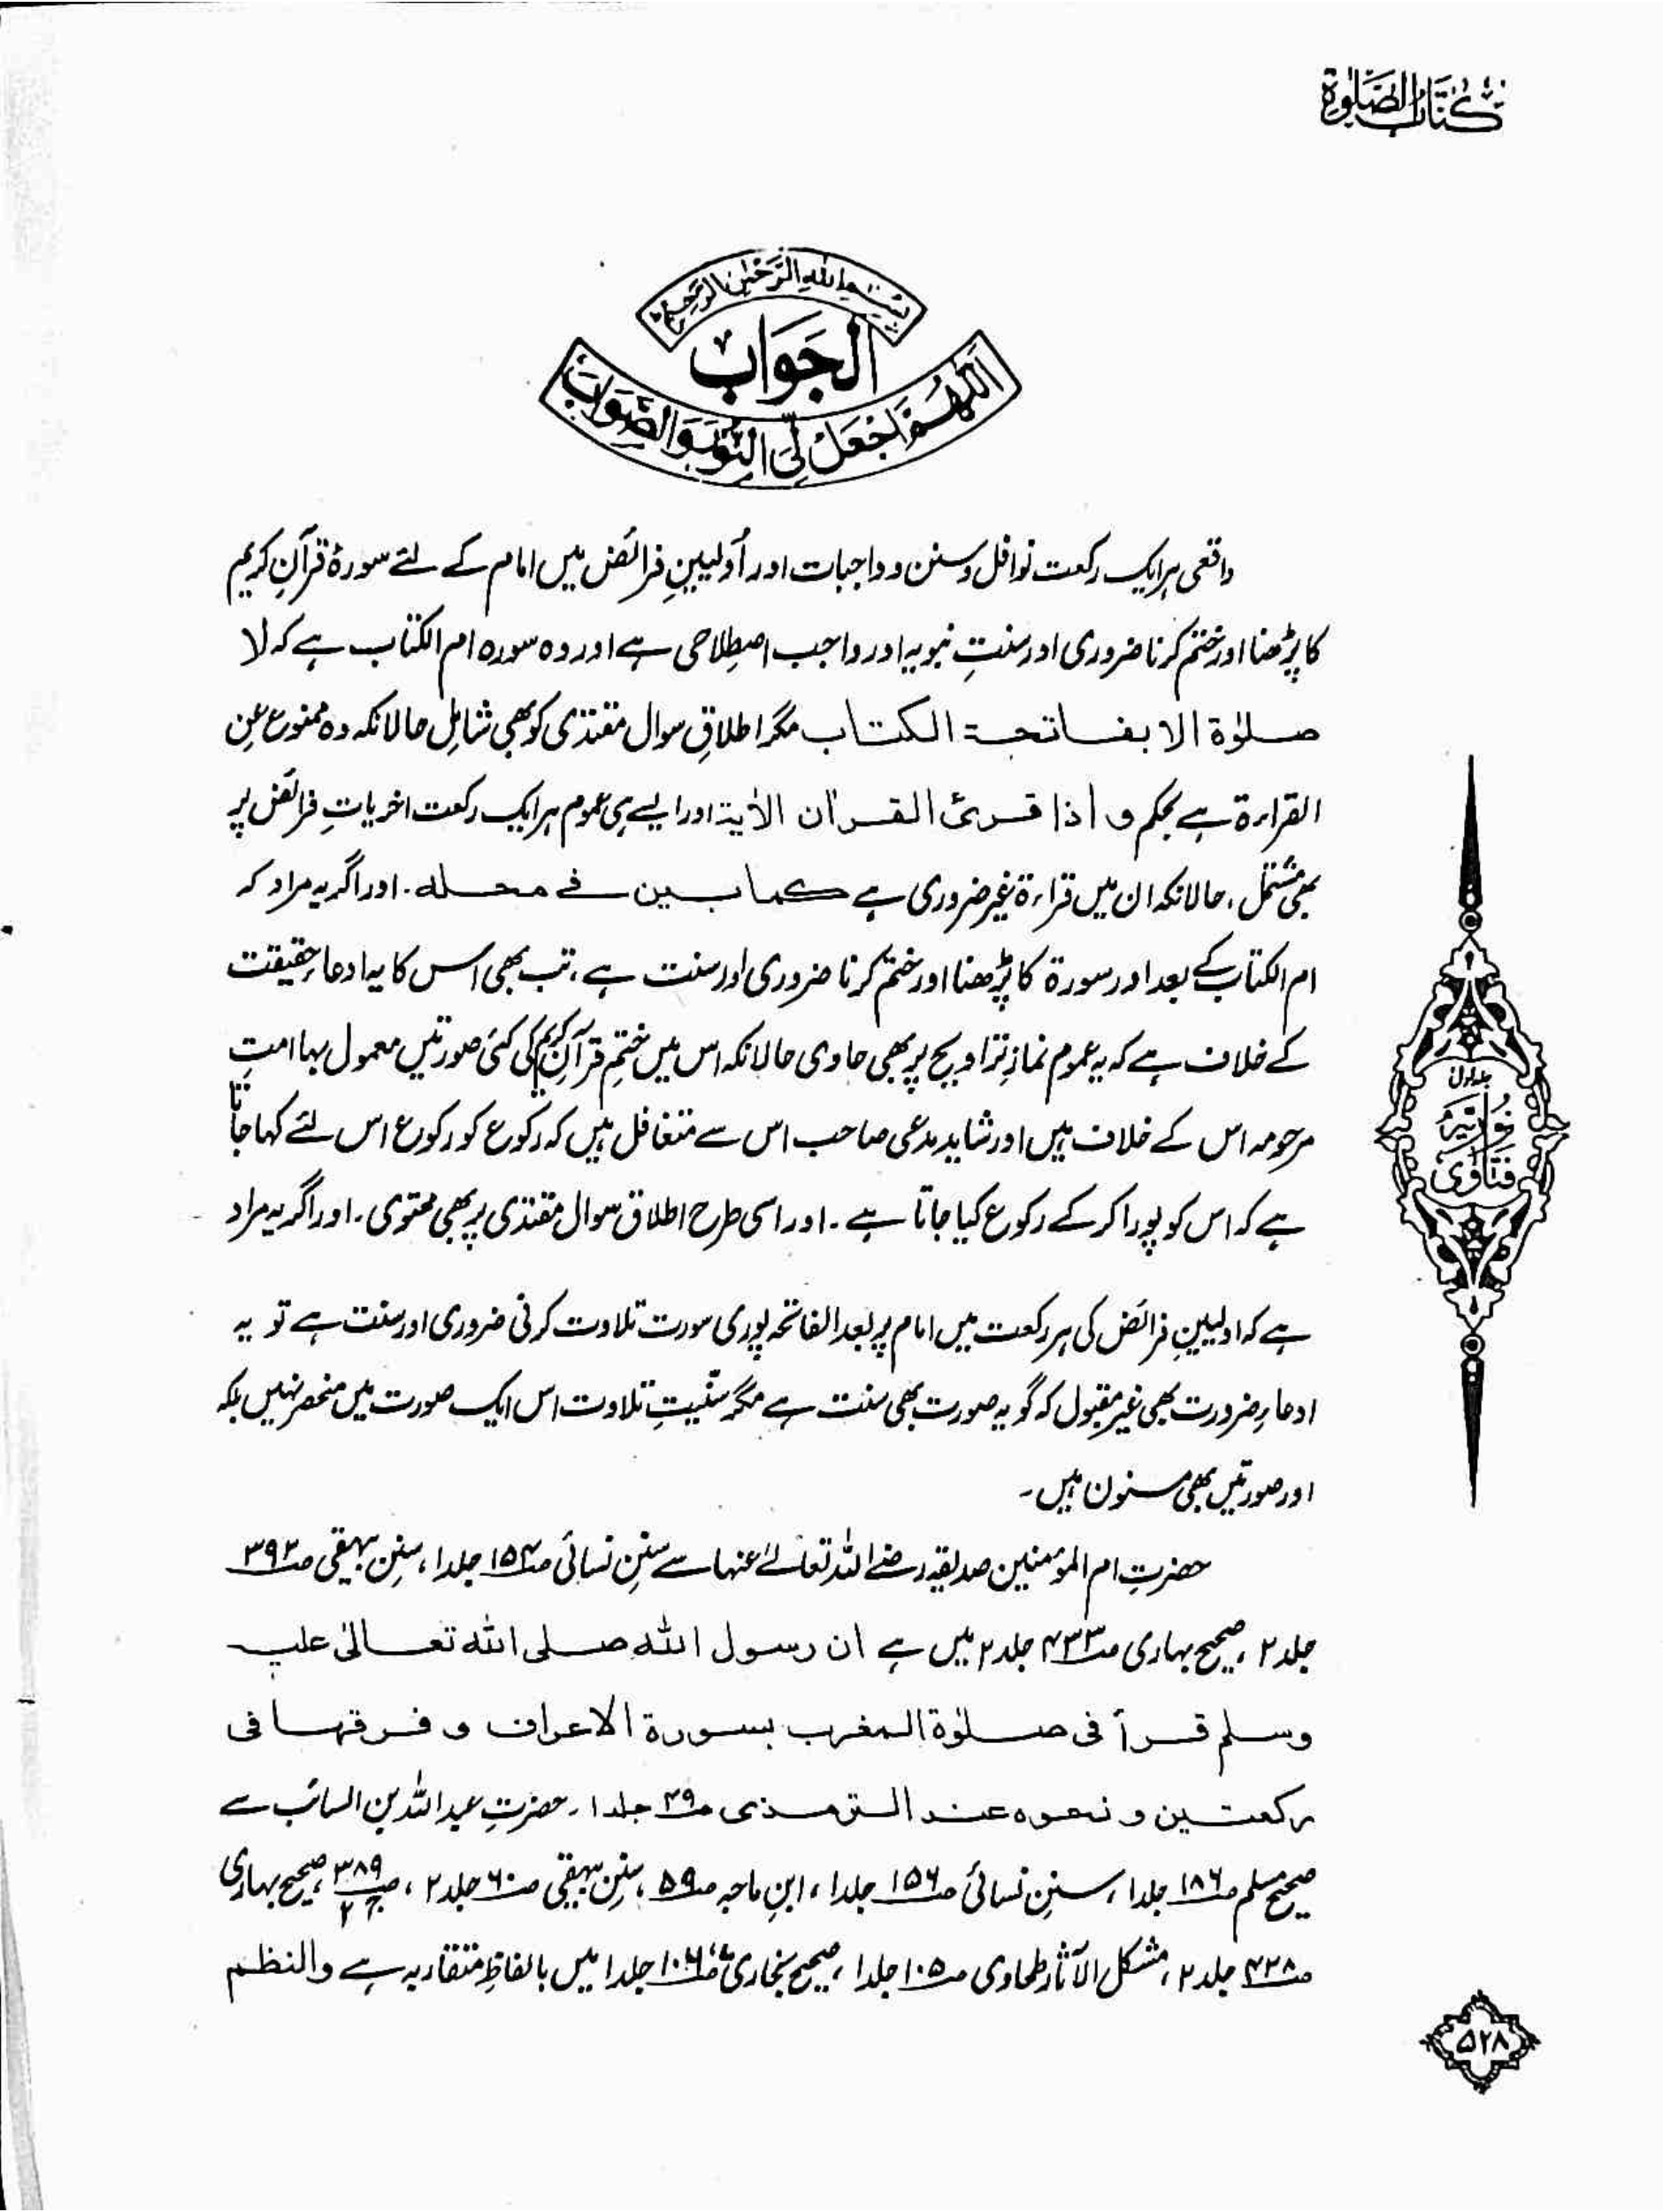 كتاب الصلوة
بسم الله الرحمن الرحيم
الجواب
اللهم اجعل لی النور والصواب
واقعی ہر ایک رکعت نوافل و سنن و واجبات اور اُولیینِ فرائض میں امام کے لئے سورۂ قرآنِ کریم
کا پڑھنا اور ختم کرنا ضروری اور سنتِ نبویہ اور واجب اصطلاحی ہے اور وہ سورہ ام الکتاب ہے کہ لا
صلوٰۃ الا بفاتحۃ الکتاب مگر اطلاقِ سوال مقتدی کو بھی شامل حالانکہ وہ ممنوع عن
القراءۃ ہے بحکم و اذا قرئ القراٰن الاٰیۃ اور ایسے ہی عموم ہر ایک رکعت اخریاتِ فرائض پر
بھی مشتمل، حالانکہ ان میں قراءۃ غیر ضروری ہے کما بین فے محلہ۔ اور اگر یہ مراد کہ
ام الکتاب کے بعد اور سورۃ کا پڑھنا اور ختم کرنا ضروری اور سنت ہے، تب بھی اس کا یہ ادعاءِ حقیقت
کے خلاف ہے کہ یہ عموم نمازِ تراویح پر بھی حاوی حالانکہ اس میں ختمِ قرآنِ کریم کی کئی صورتیں معمول بہا امتِ
مرحومہ اس کے خلاف ہیں اور شاید مدعی صاحب اس سے متغافل ہیں کہ رکوع کو رکوع اس لئے کہا جاتا
ہے کہ اس کو پورا کر کے رکوع کیا جاتا ہے۔ اور اسی طرح اطلاق سوال مقتدی پر بھی محتوی۔ اور اگر یہ مراد
ہے کہ اولیینِ فرائض کی ہر رکعت میں امام پر بعد الفاتحہ پوری سورت تلاوت کرنی ضروری اور سنت ہے تو یہ
ادعاءِ ضرورت بھی غیر مقبول کہ گو یہ صورت بھی سنت ہے مگر سنّیتِ تلاوت اس ایک صورت میں منحصر نہیں بلکہ
اور صورتیں بھی مسنون ہیں۔
حضرتِ ام المؤمنین صدیقہ رضے اللہ تعالےٰ عنہا سے سننِ نسائی ص۱۵۴ جلد۱، سننِ بیہقی ص۳۹۲
جلد ۲، صحیح بہاری ص۴۳۳ جلد ۲ میں ہے ان رسول اللہ صلی اللہ تعالیٰ علیہ
وسلم قرأ فی صلوٰۃ المغرب بسورۃ الاعراف و فرقھا فی
رکعتین و نحوہ عند الترمذی ص۴۹ جلد ۱۔ حضرتِ عبد اللہ بن السائب سے
صحیح مسلم ص۱۸۶ جلد۱، سننِ نسائی ص۱۵۶ جلد۱، ابنِ ماجہ ص۵۹، سننِ بیہقی ص۶۰ جلد ۲، ص۳۸۹ ج۲، صحیح بہاری
ص۴۲۸ جلد ۲، مشکل الآثار طحاوی ص۱۰۵ جلد۱، صحیح بخاری ص۱۰۶ جلد۱ میں بالفاظِ متقاربہ ہے والنظم
جلد اول
فتاوٰی نوریہ
۵۲۸